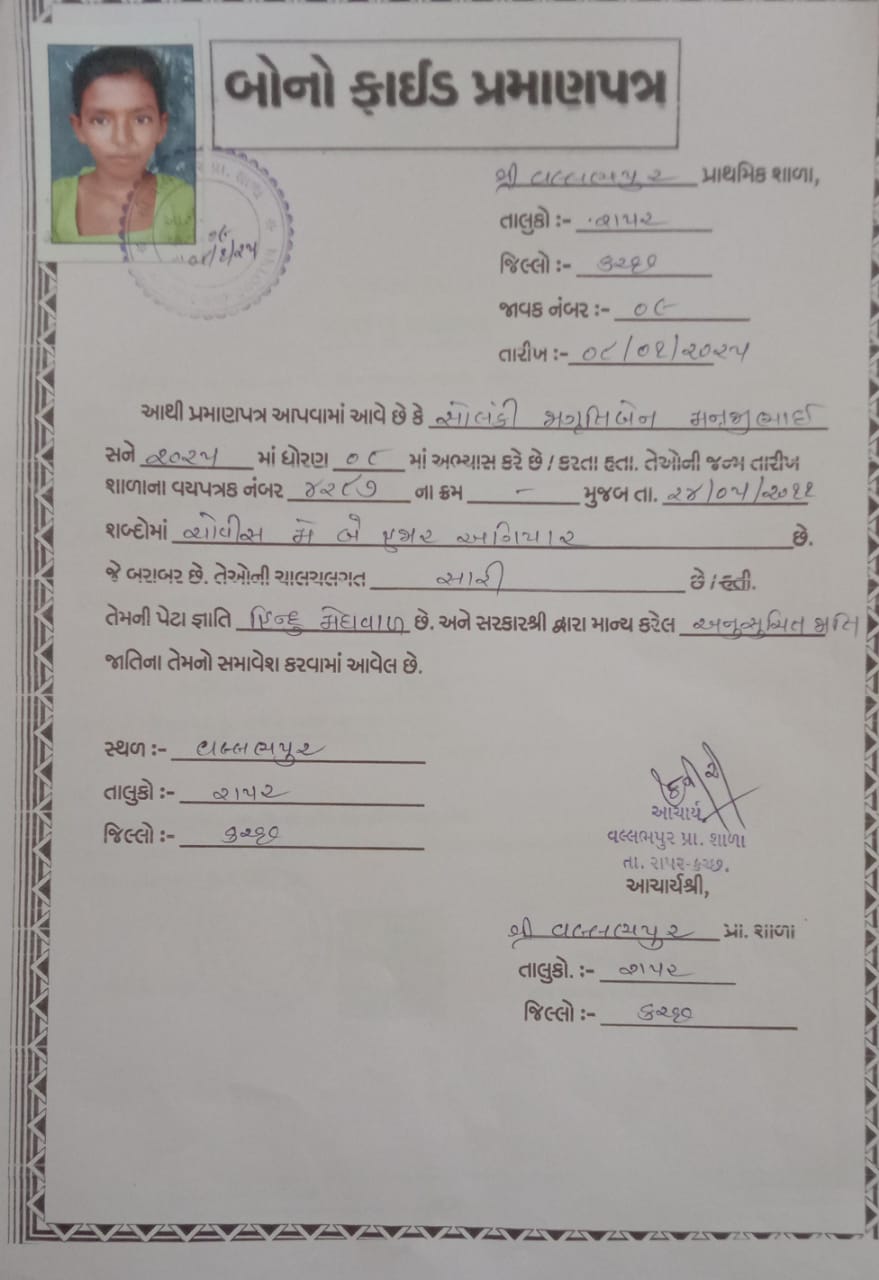 બોનો ફાઈડ પ્રમાણપત્ર
શ્રી વલ્લભપુર પ્રાથમિક શાળા,
તાલુકો :- રાપર
જિલ્લો :- કચ્છ
જાવક નંબર :- ૦૯
તારીખ :- ૦૮/૦૧/૨૦૨૫
આથી પ્રમાણપત્ર આપવામાં આવે છે કે સોલંકી જાગૃતિબેન મનજીભાઈ
સને ૨૦૨૫ માં ધોરણ ૦૮ માં અભ્યાસ કરે છે / કરતા હતા. તેઓની જન્મ તારીખ
શાળાના વયપત્રક નંબર ૪૨૯૭ ના ક્રમ - મુજબ તા. ૨૪/૦૫/૨૦૧૧
શબ્દોમાં ચોવીસ મે બે હજાર અગિયાર છે.
જે બરાબર છે. તેઓની ચાલચલગત સારી છે / હતી.
તેમની પેટા જ્ઞાતિ હિન્દુ મેઘવાળ છે. અને સરકારશ્રી દ્વારા માન્ય કરેલ અનુસુચિત જાતિ
જાતિના તેમનો સમાવેશ કરવામાં આવેલ છે.
સ્થળ :- વલ્લભપુર
તાલુકો :- રાપર
જિલ્લો :- કચ્છ
આચાર્ય
વલ્લભપુર પ્રા. શાળા
તા. રાપર-કચ્છ.
આચાર્યશ્રી,
શ્રી વલ્લભપુર પ્રા. શાળા
તાલુકો. :- રાપર
જિલ્લો :- કચ્છ